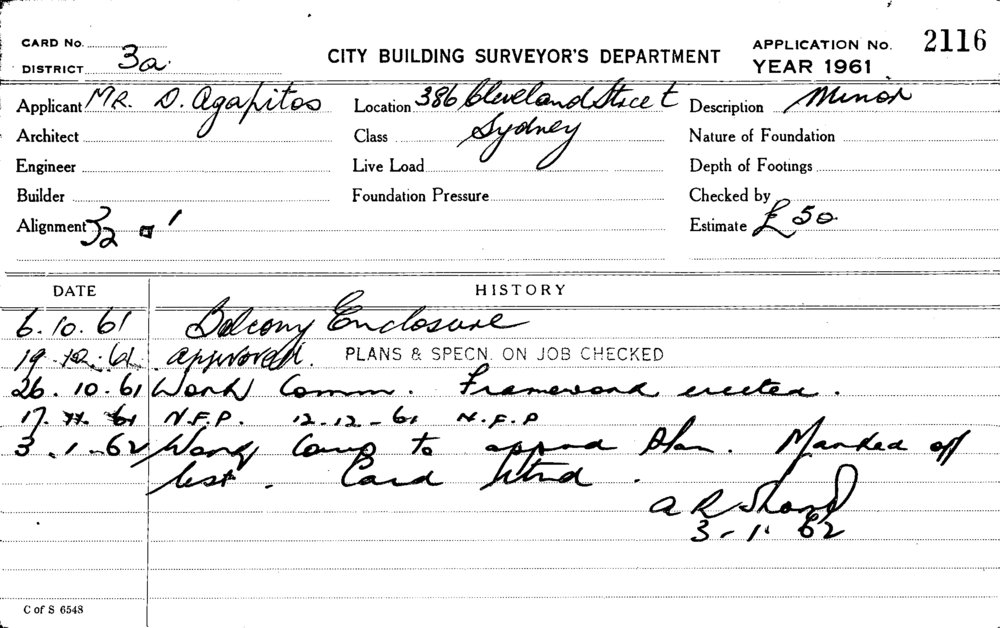 CARD No.
DISTRICT 3a.
CITY BUILDING SURVEYOR'S DEPARTMENT
APPLICATION No. 2116
YEAR 1961
Applicant MR. D. Agapitos
Location 386 Cleveland Street
Sydney
Description Minor
Architect
Class
Nature of Foundation
Engineer
Live Load
Depth of Footings
Builder
Foundation Pressure
Checked by
Alignment
Estimate £50
DATE HISTORY
6.10.61 Balcony Enclosure
19.10.61. approved. PLANS & SPECN. ON JOB CHECKED
26.10.61 Work Comm. Framework erected.
17.11.61 N.F.P. 12-12-61 N.F.P
3.1-62 Work Comp to approd plan. Marked off
list. Card retnd.
A R
3-1.62
C of S 6548